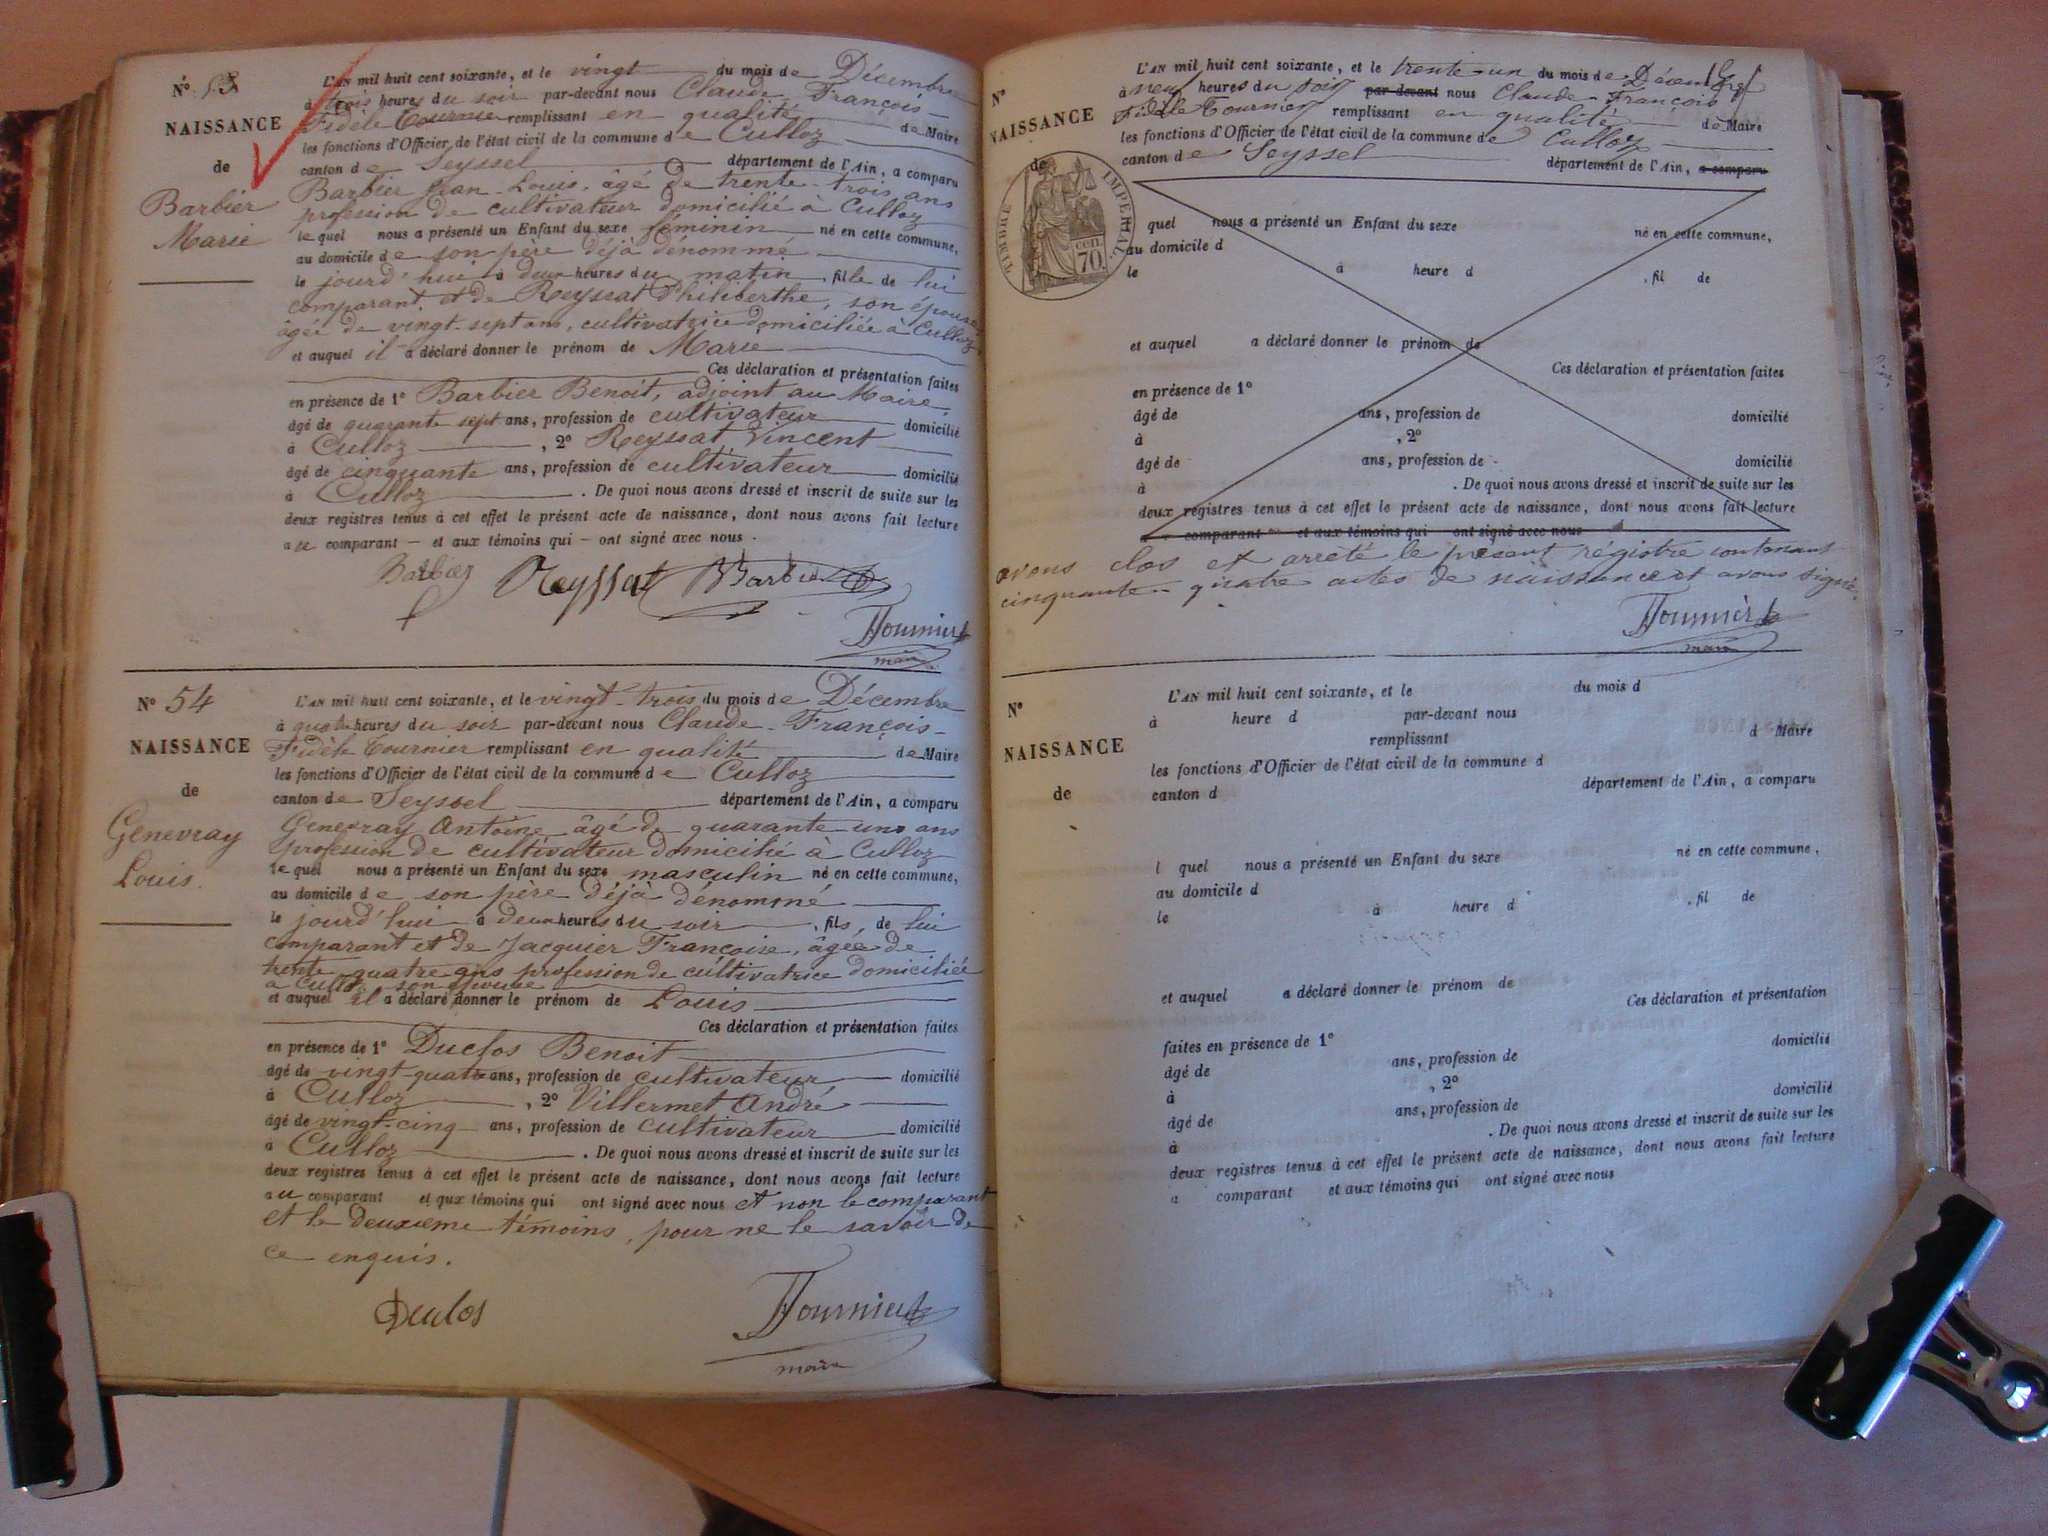 N° 53
NAISSANCE
de
Barbier
Marie
L'AN mil huit cent soixante, et le vingt du mois de Décembre
à trois heures du soir par-devant nous Claude François
Fidèle Tournier remplissant en qualité de Maire
les fonctions d'Officier de l'état civil de la commune de Culloz
canton de Seyssel département de l'Ain, a comparu
Barbier Jean-Louis, âgé de trente-trois ans
profession de cultivateur domicilié à Culloz
lequel nous a présenté un Enfant du sexe féminin né en cette commune,
au domicile de son père déjà dénommé
le jourd'hui à deux heures du matin fille de lui
comparant et de Reyssat Philiberthe, son épouse
âgée de vingt-sept ans, cultivatrice domiciliée à Culloz
et auquel il a déclaré donner le prénom de Marie
Ces déclaration et présentation faites
en présence de 1° Barbier Benoit, adjoint au Maire,
âgé de quarante sept ans, profession de cultivateur domicilié
à Culloz, 2° Reyssat Vincent
âgé de cinquante ans, profession de cultivateur domicilié
à Culloz. De quoi nous avons dressé et inscrit de suite sur les
deux registres tenus à cet effet le présent acte de naissance, dont nous avons fait lecture
au comparant — et aux témoins qui — ont signé avec nous.
Barbier Reyssat Barbier
Tournier
maire
N° 54
NAISSANCE
de
Genevray
Louis.
L'AN mil huit cent soixante, et le vingt-trois du mois de Décembre
à quatre heures du soir par-devant nous Claude-François-
Fidèle Tournier remplissant en qualité de Maire
les fonctions d'Officier de l'état civil de la commune de Culloz
canton de Seyssel département de l'Ain, a comparu
Genevray Antoine âgé de quarante-un ans
profession de cultivateur domicilié à Culloz
lequel nous a présenté un Enfant du sexe masculin né en cette commune,
au domicile de son père déjà dénommé
le jourd'hui à deux heures du soir, fils, de lui
comparant et de Jacquier Françoise, âgée de
trente quatre ans profession de cultivatrice domiciliée
à Culloz son épouse
et auquel il a déclaré donner le prénom de Louis
Ces déclaration et présentation faites
en présence de 1° Duclos Benoit
âgé de vingt-quatre ans, profession de cultivateur domicilié
à Culloz, 2° Villermet André
âgé de vingt-cinq ans, profession de cultivateur domicilié
à Culloz. De quoi nous avons dressé et inscrit de suite sur les
deux registres tenus à cet effet le présent acte de naissance, dont nous avons fait lecture
au comparant et aux témoins qui ont signé avec nous et non le comparant
et le deuxième témoins, pour ne le savoir de
ce enquis.
Duclos Tournier
maire
N°
NAISSANCE
de
TIMBRE IMPERIAL
70 cen.
L'AN mil huit cent soixante, et le trente-un du mois de Décembre
à neuf heures du soir par-devant nous Claude-François
Fidèle Tournier remplissant en qualité de Maire
les fonctions d'Officier de l'état civil de la commune de Culloz
canton de Seyssel département de l'Ain, a comparu
quel nous a présenté un Enfant du sexe né en cette commune,
au domicile d
le à heure d , fil de
et auquel a déclaré donner le prénom de
Ces déclaration et présentation faites
en présence de 1°
âgé de ans, profession de domicilié
à , 2°
âgé de ans, profession de domicilié
à . De quoi nous avons dressé et inscrit de suite sur les
deux registres tenus à cet effet le présent acte de naissance, dont nous avons fait lecture
comparant et aux témoins qui ont signé avec nous
avons clos et arrêté le présent régistre contenant
cinquante-quatre actes de naissance et avons signé.
Tournier
maire
N°
NAISSANCE
de
L'AN mil huit cent soixante, et le du mois d
à heure d par-devant nous
remplissant d Maire
les fonctions d'Officier de l'état civil de la commune d
canton d département de l'Ain, a comparu
l quel nous a présenté un Enfant du sexe né en cette commune,
au domicile d
le à heure d , fil de
et auquel a déclaré donner le prénom de
Ces déclaration et présentation
faites en présence de 1°
âgé de ans, profession de domicilié
à , 2°
âgé de ans, profession de domicilié
à . De quoi nous avons dressé et inscrit de suite sur les
deux registres tenus à cet effet le présent acte de naissance, dont nous avons fait lecture
a comparant et aux témoins qui ont signé avec nous